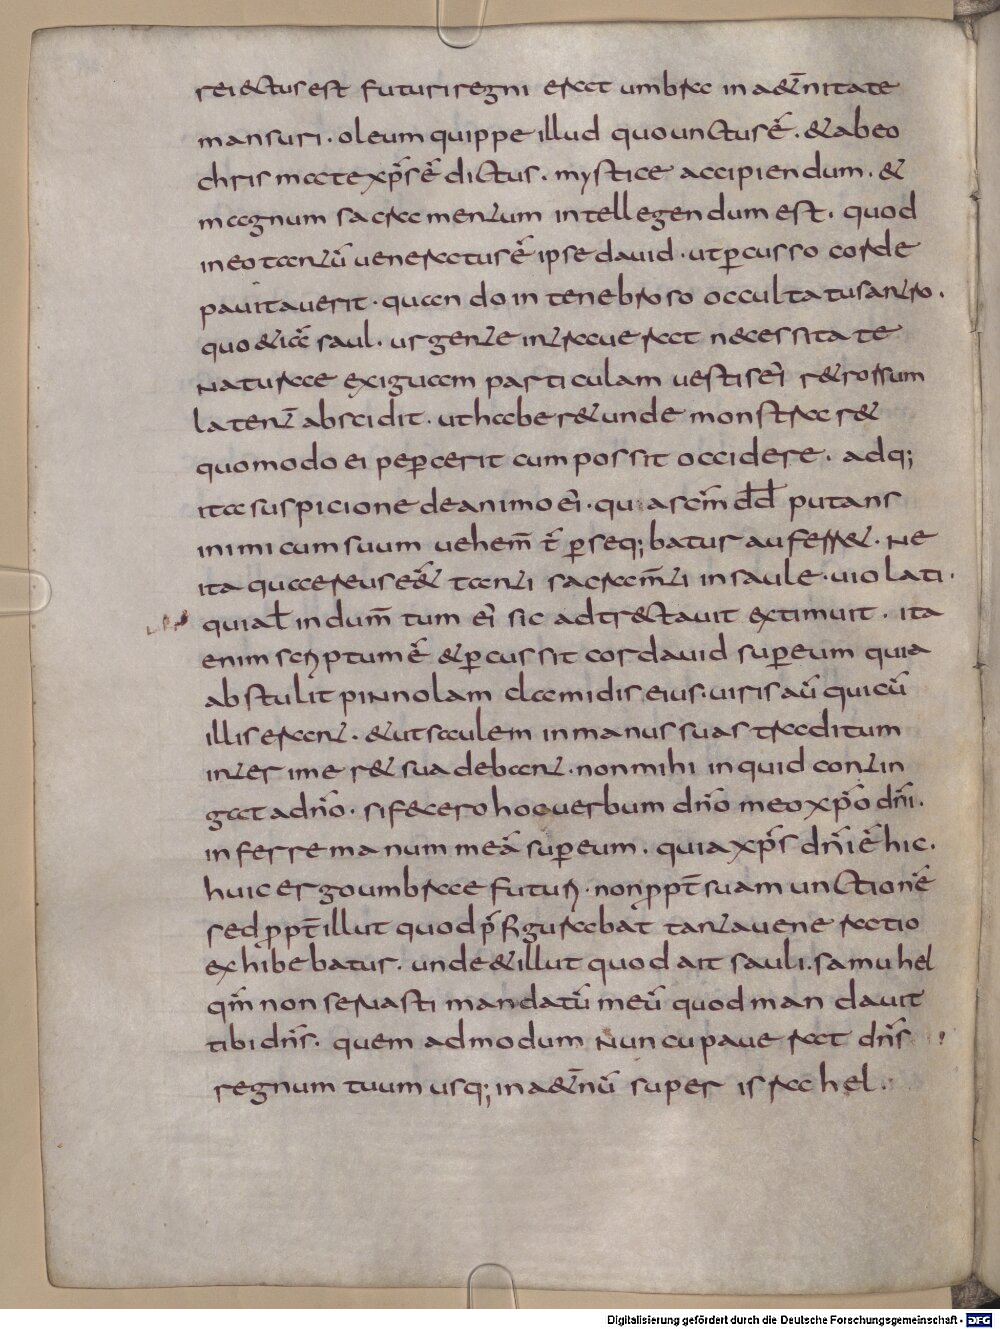 reiectusest futuriregni erat umbra in aet̄nitate
mansuri. oleum quippe illud quo unctus ē. & abeo
chrismate xp̄s ē dictus. mystice accipiendum. &
magnum sacramentum intellegendum est. quod
ineo tantū ueneratus ē ipse dauid. ut ꝑcusso corde
pauitauerit. quando in tenebroso occultatus antro.
quo & iā saul. urgente intrauerat necessitate
naturae exiguam particulam uestis ei͛ retrorsum
latent̄ abscidit. ut haberet unde monstraret
quomodo ei peꝑcerit cum possit occidere. adq;
ita suspicione de animo ei͛. qua sc̄m dd̄ putans
inimicum suum uehem̄ t̄ ꝑseq;batur auferret. Ne
ita quae reus e&̄ tanti sacram̄ti in saule. uiolati.
quia ł indum̄tum ei͛ sic adtrectauit extimuit. ita
enim scriptum ē & ꝑcussit cor dauid suꝑ eum quia
abstulit pinnolam clamidis eius. uiris aū qui cū
illis erant. & ut saulem in manus suas traditum
interimeret suadebant. non mihi inquid contin
gat a dn̄o. si fecero hoc uerbum dn̄o meo xp̄o dn̄i.
inferre manum meā suꝑ eum. quia xp̄s dn̄i ē hic.
huic ergo umbrae futuri. non ꝓpt̄ suam unctionē
sed ꝓpt̄ illut quod p̄figurabat tanta ueneratio
exhibebatur. unde & illut quod ait sauli. samuhel
qm̄ non seruasti mandatū meū quod mandauit
tibi dn̄s. quem admodum nuncupauerat dn̄s
regnum tuum usq; in aet̄nū super israhel.
Digitalisierung gefördert durch die Deutsche Forschungsgemeinschaft - DFG